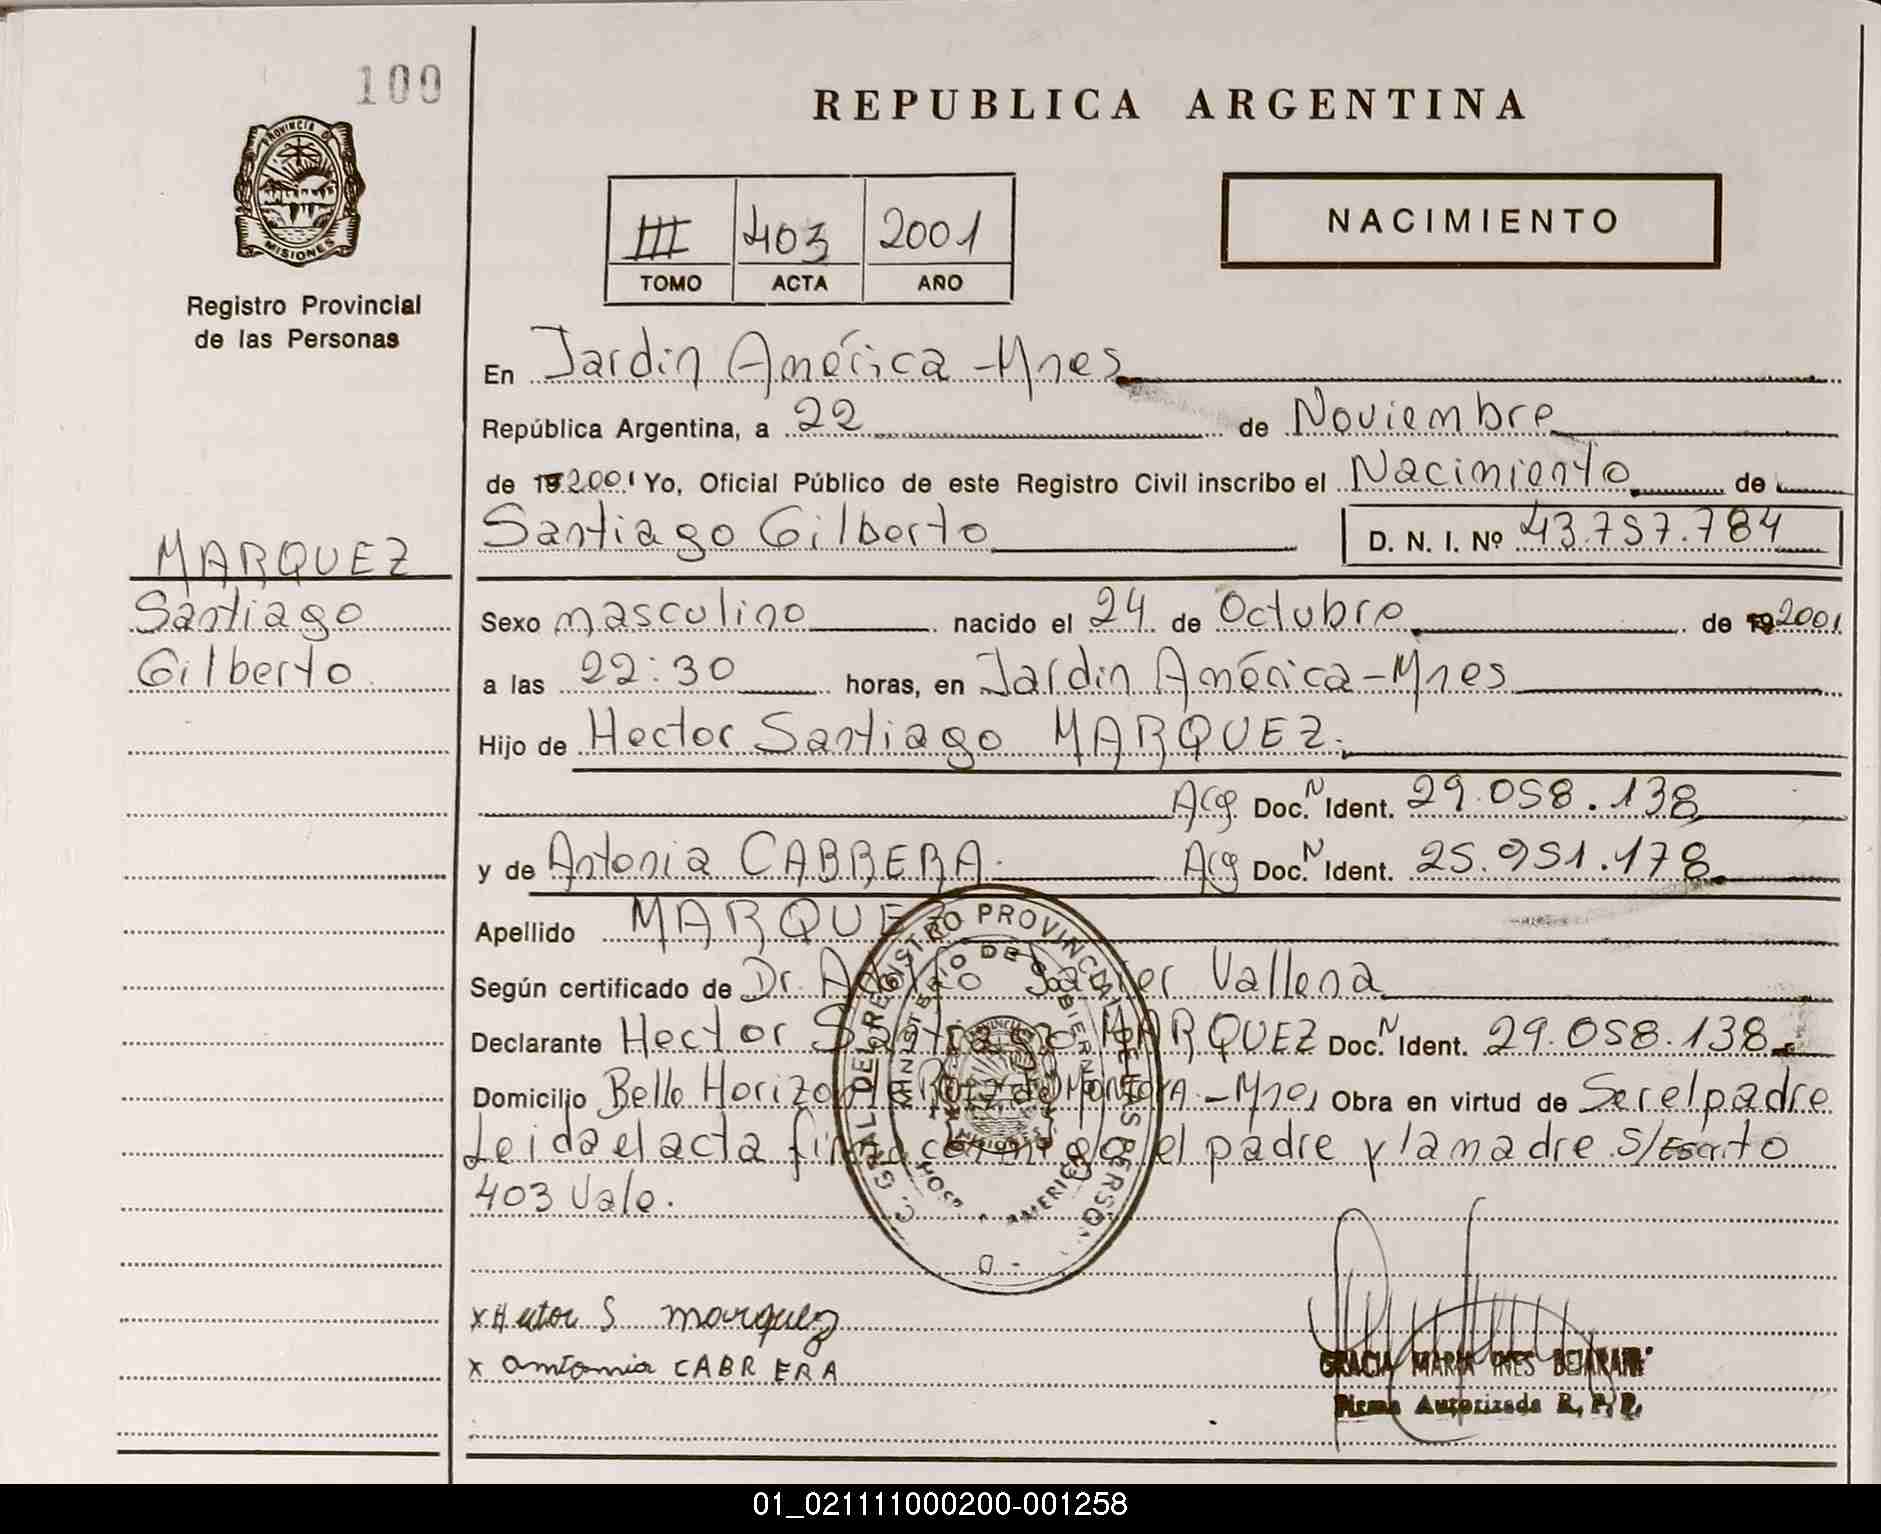 100
PROVINCIA DE
MISIONES
Registro Provincial
de las Personas
MARQUEZ
Santiago
Gilberto
REPUBLICA ARGENTINA
III 403 2001
TOMO ACTA AÑO
NACIMIENTO
En Jardin América - Mnes
República Argentina, a 22 de Noviembre
de 19 2001 Yo, Oficial Público de este Registro Civil inscribo el Nacimiento de
Santiago Gilberto D. N. I. Nº 43.757.784
Sexo masculino nacido el 24 de Octubre de 19 2001
a las 22:30 horas, en Jardin América - Mnes
Hijo de Hector Santiago MARQUEZ.
Arg Doc. N Ident. 29.058.138
y de Antonia CABRERA. Arg Doc. N Ident. 25.951.178
Apellido MARQUEZ
Según certificado de Dr. Javier Vallena
Declarante Hector Santiago MARQUEZ Doc. N Ident. 29.058.138
Domicilio Bello Horizonte Ruiz de Montoya - Mnes Obra en virtud de Ser el padre
Leida el acta firma conmigo el padre y la madre S/Escrito
403 Vale.
GRAL DEL REGISTRO PROVINCIAL DE LAS PERSO
MINISTERIO DE GOBIERNO
x Hector S marquez
x antonia CABRERA
GRACIA MARIA INES BEJARANO
Firma Autorizada R. P. P.
01_021111000200-001258